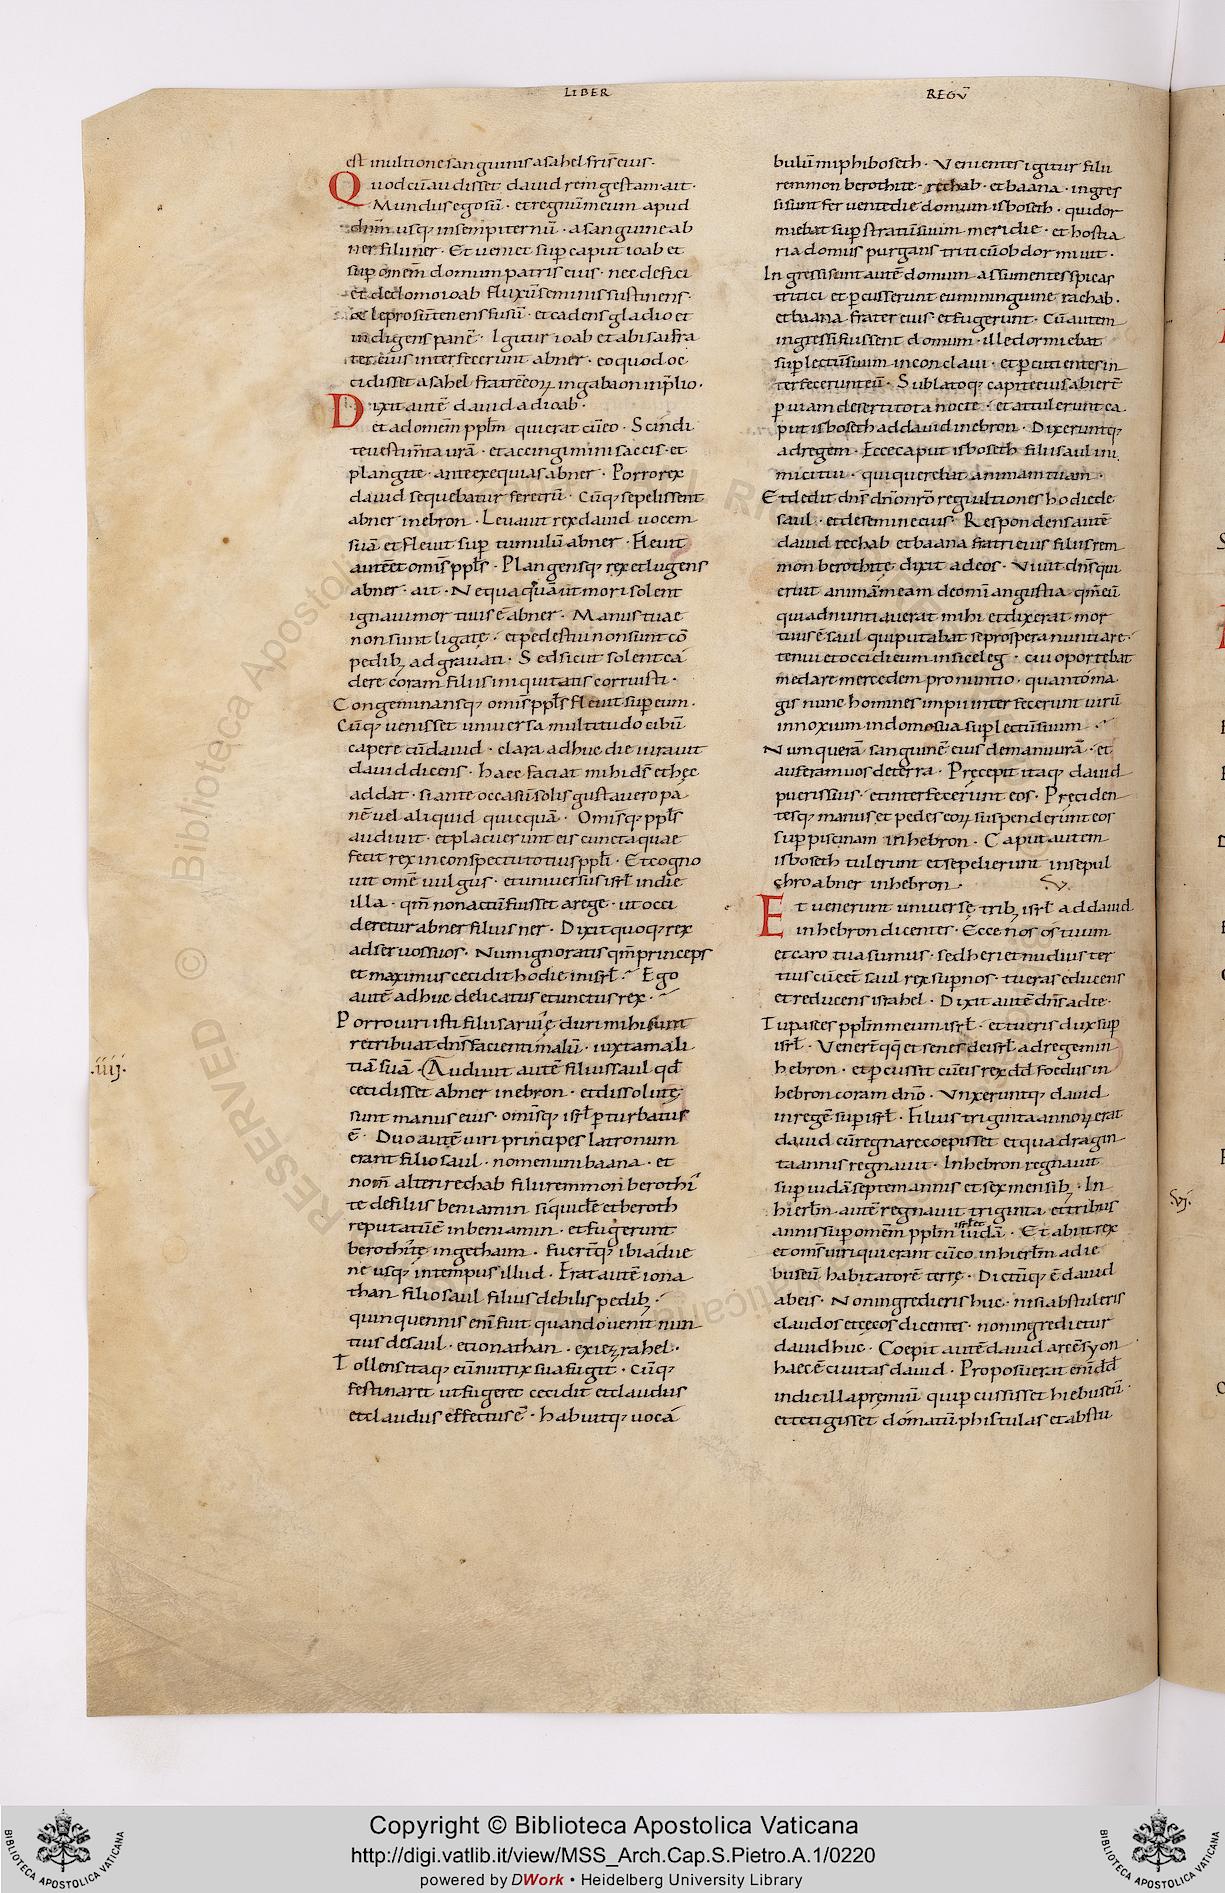 LIBER
REGŪ
est in ultione sanguinis asahel fr̄is eius·
Quod cū audisset dauid rem gestam· ait·
Mundus ego sū· et regnū meum apud
dn̄m usq; in sempiternū· a sanguine ab
ner filii ner· Et ueniet sup caput ioab et
sup omēm domum patris eius· nec defici
et de domo ioab fluxū seminis sustinens·
& leprosū tenens fusū· et cadens gladio et
indigens pane· Igitur ioab et abisai fra
ter eius interfecerunt abner· eo quod oc
cidisset asahel fratrē eoꝝ in gabaon in p̄lio·
Dixit autē dauid ad ioab·
et ad omēm pplm̄ qui erat cū eo· Scindi
te uestim̄ta ur̄a· et accingimini saccis· et
plangite· ante exequias abner· Porro rex
dauid sequebatur feretrū· Cūq; sepelissent
abner in ebron· Leuauit rex dauid uocem
suā et fleuit sup tumulū abner· Fleuit
autē et omīs ppl̄s· Plangensq; rex et lugens
abner· ait· Nequaquā ut mori solent
ignaui mortuus ē abner· Manus tuae
non sunt ligatę· et pedes tui non sunt cō
pedib; adgrauati· Sed sicut solent ca
dere coram filiis iniquitatis corruisti·
Congeminansq; omīs ppl̄s fleuit sup eum·
Cūq; uenisset uniuersa multitudo cibū
capere cū dauid· clara adhuc die iurauit
dauid dicens· haec faciat mihi ds̄ et hęc
addat· si ante occasū solis gustauero pa
nē uel aliquid quicquā· Omisq; ppl̄s
audiuit· et placuerunt eis cuncta quae
fecit rex in conspectu totius ppl̄i· Et cogno
uit omē uulgus· et uniuersus isrl̄ in die
illa· qm̄ non actū fuisset a rege· ut occi
deretur abner filius ner· Dixit quoq; rex
ad seruos suos· Num ignoratis qm̄ princeps
et maximus cecidit hodie in isrl̄· Ego
autē adhuc delicatus et unctus rex·
Porro uiri isti filii saruię duri mihi sunt
retribuat dns̄ facienti malū· iuxta mali
.iiij.
tiā suā· Audiuit autē filius saul qđ
cecidisset abner in ebron· et dissolutę
sunt manus eius· omīsq; isrl̄ pturbatus
ē· Duo autē uiri principes latronum
erant filio saul· nomen uni baana· et
nom̄ alteri rechab filii remmon berothi
te de filiis beniamin siquidē et beroth
reputatū ē in beniamin· et fugerunt
berothitę in gethaim· Fuerūtq; ibi adue
nę usq; in tempus illud· Erat autē iona
than filio saul filius debilis pedib;·
quinquennis enī fuit quando uenit nun
tius de saul· et ionathan· ex iezrahel·
Tollens itaq; eū nutrix sua fugit· Cūq;
festinaret ut fugeret cecidit et claudus
et claudus effectus ē· habuitq; uoca
bulū miphiboseth· Venientes igitur filii
remmon berothite· rechab· et baana· ingres
si sunt feruente die domum isboseth· qui dor
miebat sup stratū suum meridie· et hostia
ria domus purgans triticū obdormiuit·
Ingressi sunt autē domum assumentes spicas
tritici et pcusserunt eum in inguine rachab·
et baana frater eius· et fugerunt· Cū autem
ingressi fuissent domum· ille dormiebat
sup lectū suum in conclaui· et pcutientes in
terfecerunt eū· Sublatoq; capite eius abierт̄
p uiam deserti tota nocte· et attulerunt ca
put isboseth ad dauid in ebron· Dixeruntq;
ad regem· Ecce caput isboseth filii saul ini
mici tui· qui querebat animam tuam·
Et dedit dns̄ dn̄o nr̄o regi ultiones hodie de
saul· et de semine eius· Respondens autē
dauid rechab et baana fratri eius filiis rem
mon berothite dixit ad eos· Viuit dns̄ qui
eriuit animā meam de omni angustia· qm̄ eū
qui adnuntiauerat mihi et dixerat· mor
tuus ē saul qui putabat se prospera nuntiare·
tenui et occidi eum in siceleg· cui oportebat
me dare mercedem pro nuntio· quanto ma
gis nunc homines impii interfecerunt uirū
innoxium in domo sua sup lectū suum·
Num querā sanguinē eius de manu ur̄a· et
auferam uos de terra· Pręcepit itaq; dauid
pueris suis· et interfecerunt eos· Pręciden
tesq; manus et pedes eoꝝ suspenderunt eos
sup piscinam in hebron· Caput autem
isboseth tulerunt et sepelierunt in sepul
chro abner in hebron·
.v.
Et uenerunt uniuersę trib; isrl̄ ad dauid
in hebron dicentes· Ecce nos os tuum
et caro tua sumus· sed heri et nudius ter
tius cū eēt saul rex sup nos· tu eras educens
et reducens israhel· Dixit autē dns̄ ad te·
Tu pasces pplm̄ meum isrl̄· et tu eris dux sup
isrl̄· Venerт̄ qq̄ et senes de isrl̄ ad regem in
hebron· et pcussit cū eis rex dd̄ foedus in
hebron coram dn̄o· Vnxeruntq; dauid
in regē sup isrl̄· Filius triginta annoꝝ erat
dauid cū regnare coepisset et quadragin
ta annis regnauit· In hebron regnauit
sup iudā septem annis et sex mensib;· In
.vj.
hierlm̄· autē regnauit triginta et tribus
annis sup omēm pplm̄ isrl̄ et iudā· Et abiit rex
et oms̄ uiri qui erant cū eo in hierlm̄ ad ie
buseū habitatorē terrę· Dictūq; ē dauid
ab eis· Non ingredieris huc· nisi abstuleris
claudos et cecos dicentes· non ingredietur
dauid huc· Coepit autē dauid arcē syon
haec ē ciuitas dauid· Proposuerat enī dd̄
in die illa pręmiū· qui pcussisset hiebuseū·
et tetigisset domatū phistulas et abstu
Copyright © Biblioteca Apostolica Vaticana
http://digi.vatlib.it/view/MSS_Arch.Cap.S.Pietro.A.1/0220
powered by DWork • Heidelberg University Library